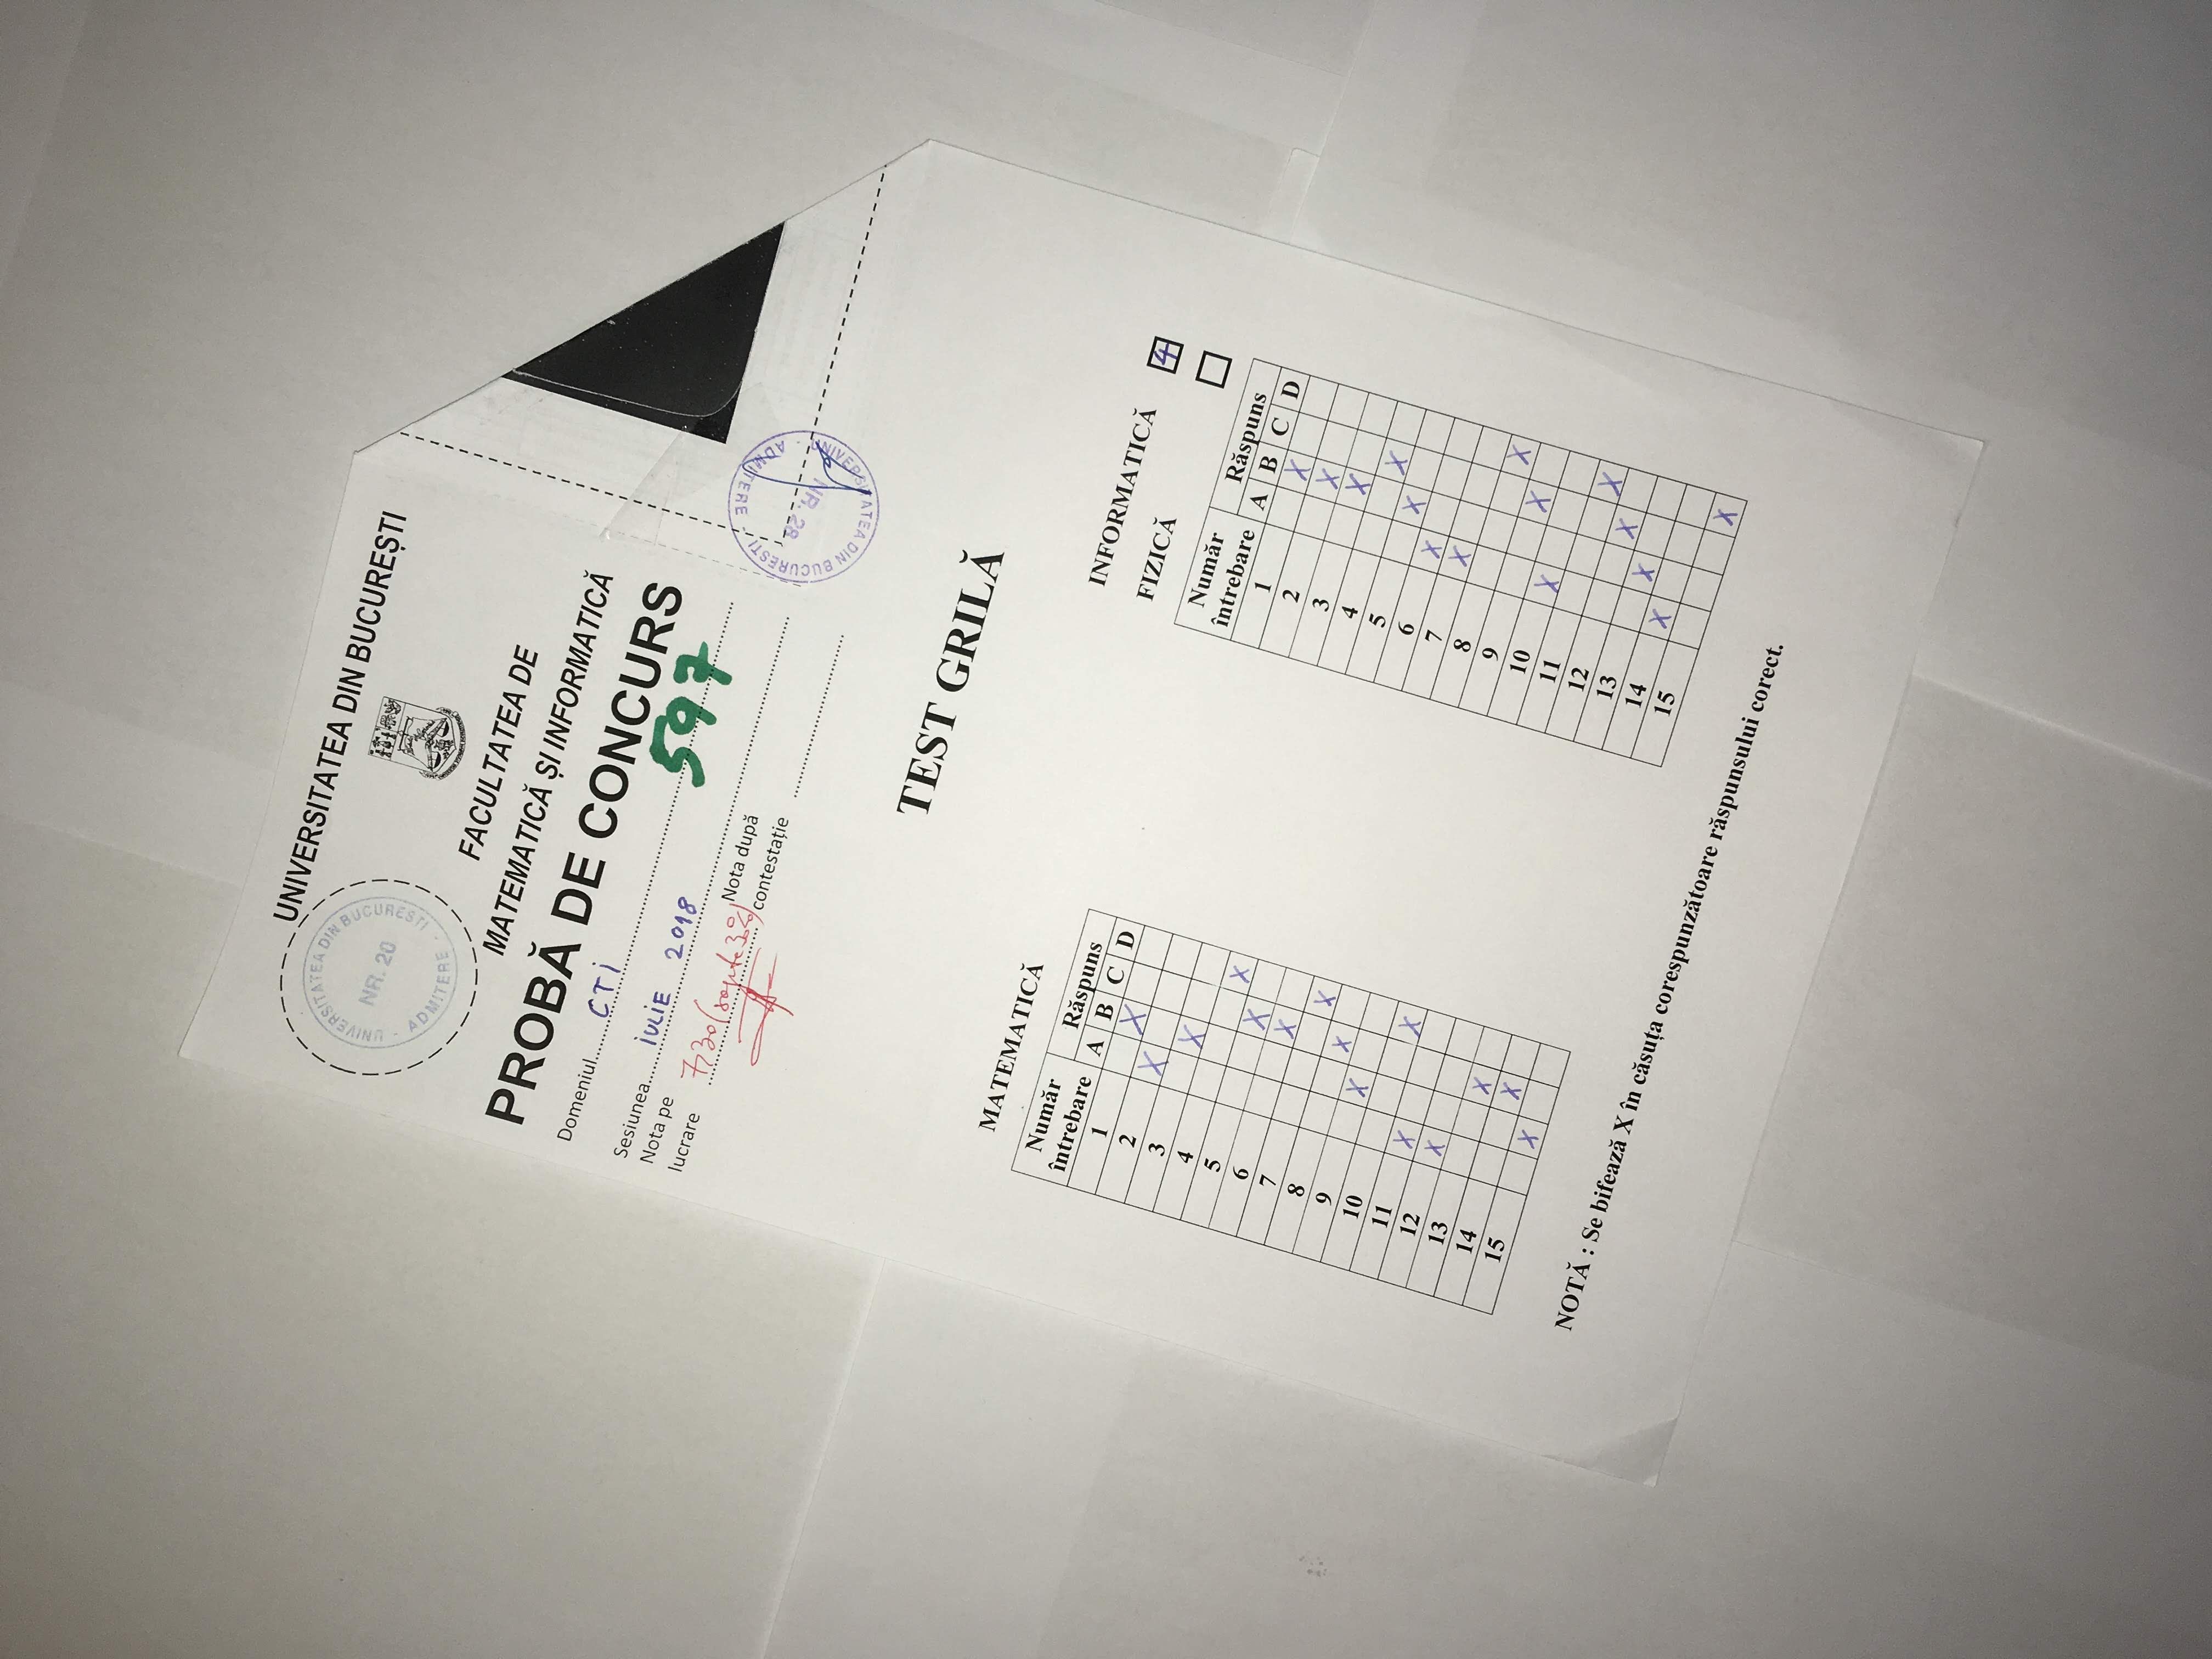 UNIVERSITATEA DIN BUCUREȘTI
UNIVERSITATEA DIN BUCURESTI · ADMITERE ·
NR. 20
FACULTATEA DE
MATEMATICĂ ȘI INFORMATICĂ
PROBĂ DE CONCURS
Domeniul CTi
597
Sesiunea iULiE 2018
Nota pe
lucrare 7,30 (șapte 30%)
Nota după
contestație
UNIVERSITATEA DIN BUCURESTI · ADMITERE ·
NR. 28
TEST GRILĂ
MATEMATICĂ
Număr
întrebare
Răspuns
A B C D
1 X
2 X
3 X
4 X
5 X
6 X
7 X
8 X
9 X
10 X
11 X
12 X
13 X
14 X
15 X
INFORMATICĂ 4
FIZICĂ
Număr
întrebare
Răspuns
A B C D
1 X
2 X
3 X
4 X
5 X
6 X
7 X
8 X
9 X
10 X
11 X
12 X
13 X
14 X
15 X
NOTĂ : Se bifează X în căsuța corespunzătoare răspunsului corect.